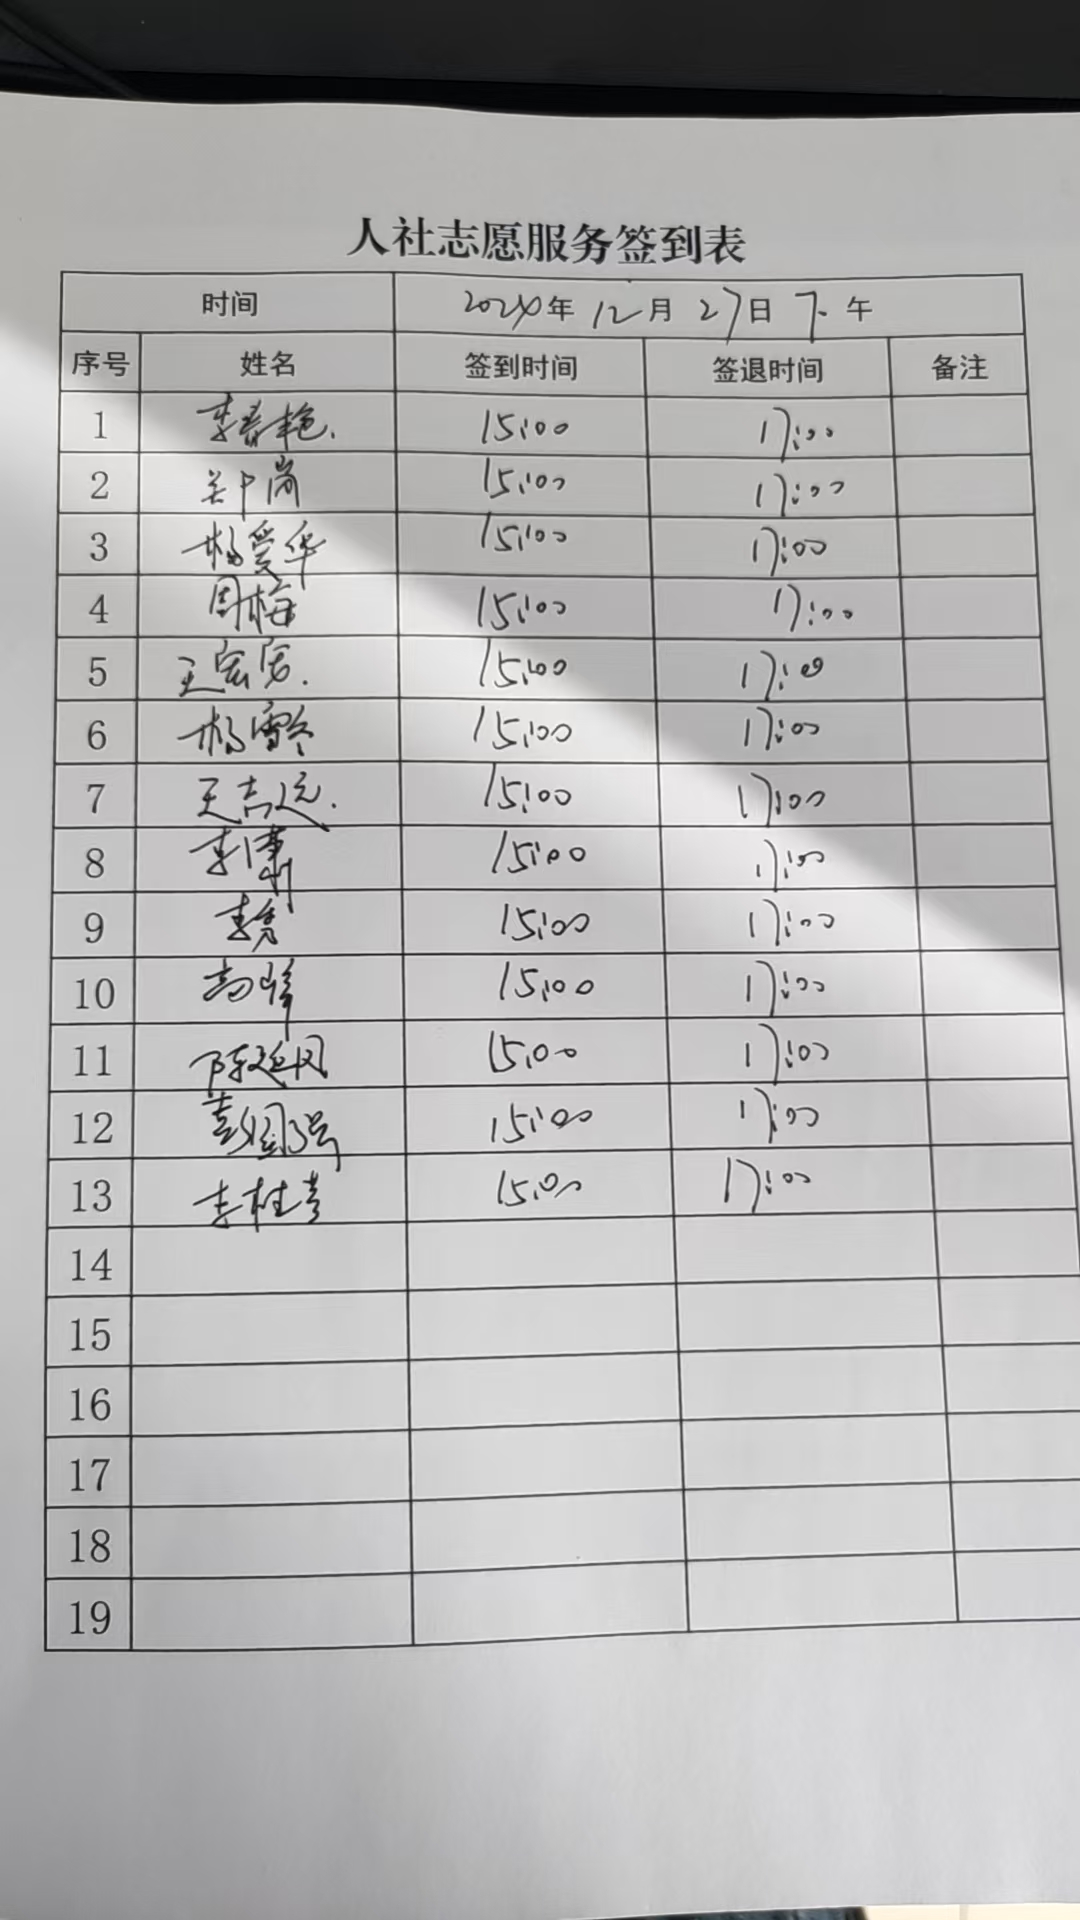 人社志愿服务签到表
时间 2024年 12月 27日 下午
序号 姓名 签到时间 签退时间 备注
1 李春艳. 15:00 17:00
2 郑岗 15:00 17:00
3 杨爱华 15:00 17:00
4 周梅 15:00 17:00
5 王宏 15:00 17:00
6 杨雪 15:00 17:00
7 王志远. 15:00 17:00
8 李 15:00 17:00
9 李秀 15:00 17:00
10 高 15:00 17:00
11 陈延风 15:00 17:00
12 彭国强 15:00 17:00
13 李桂 15:00 17:00
14
15
16
17
18
19